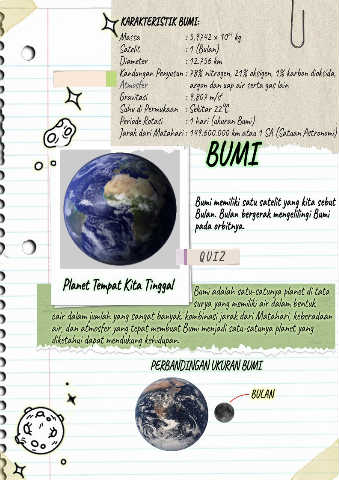 KARAKTERISTIK BUMI:
Massa : 5,9742 x 10²⁴ kg
Satelit : 1 (Bulan)
Diameter : 12.756 km
Kandungan Penyusun : 78% nitrogen, 21% oksigen, 1% karbon dioksida,
Atmosfer argon dan uap air serta gas lain
Gravitasi : 9,807 m/s²
Suhu di Permukaan : Sekitar 22°C
Periode Rotasi : 1 hari (ukuran Bumi)
Jarak dari Matahari : 149.600.000 km atau 1 SA (Satuan Astronomi)
BUMI
Bumi memiliki satu satelit yang kita sebut
Bulan. Bulan bergerak mengelilingi Bumi
pada orbitnya.
QUIZ
Planet Tempat Kita Tinggal
Bumi adalah satu-satunya planet di tata
surya yang memiliki air dalam bentuk
cair dalam jumlah yang sangat banyak. kombinasi jarak dari Matahari, keberadaan
air, dan atmosfer yang tepat membuat Bumi menjadi satu-satunya planet yang
diketahui dapat mendukung kehidupan.
PERBANDINGAN UKURAN BUMI
BULAN